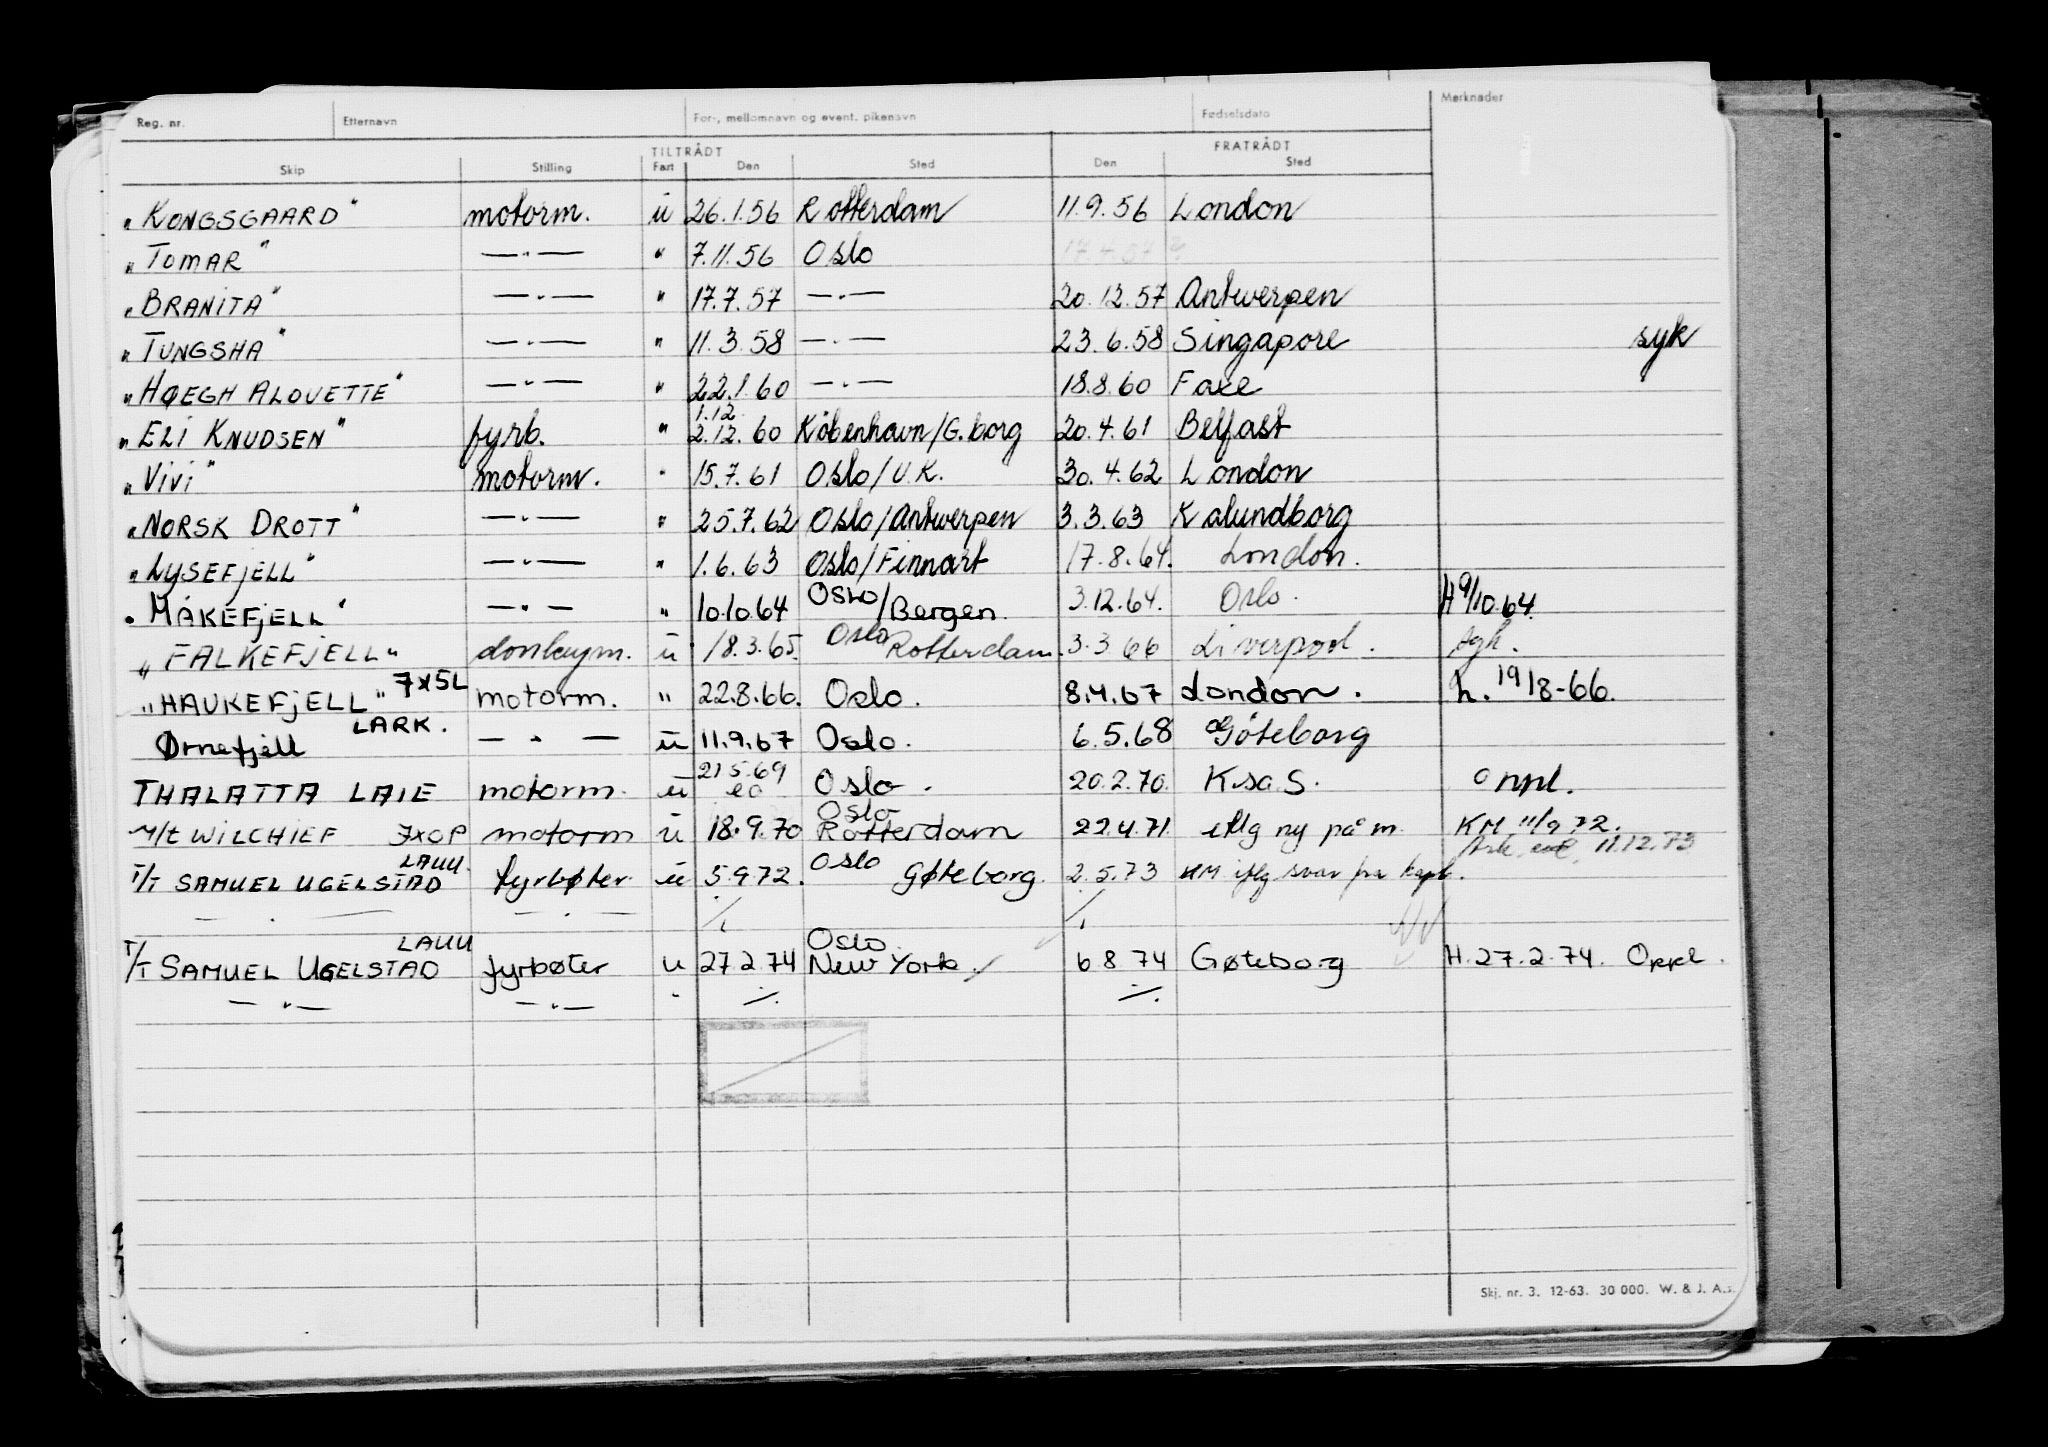 Reg. nr. Etternavn For-, mellomnavn og event. pikenavn Fødselsdato Merknader
TILTRÅDT FRATRÅDT
Skip Stilling Fart Den Sted Den Sted
"KONGSGAARD" motorm. u 26.1.56 Rotterdam 11.9.56 London
"TOMAR" —"— " 7.11.56 Oslo
"BRANITA" —"— " 17.7.57 —"— 20.12.57 Antwerpen
"TUNGSHA" —"— " 11.3.58 —"— 23.6.58 Singapore syk
"HØEGH ALOUETTE" —"— " 22.1.60 —"— 18.8.60 Faxe
1.12
"ELI KNUDSEN" fyrb. " 2.12.60 København/G.borg 20.4.61 Belfast
"VIVI" motorm. " 15.7.61 Oslo/U.K. 30.4.62 London
"NORSK DROTT" —"— " 25.7.62 Oslo/Antwerpen 3.3.63 Kalundborg
"LYSEFJELL" —"— " 1.6.63 Oslo/Finnart 17.8.64. London.
"MÅKEFJELL" —"— " 10.10.64 Oslo/Bergen 3.12.64. Oslo. H 9/10.64.
"FALKEFJELL" donkeym. u 18.3.65. Oslo Rotterdam. 3.3.66 Liverpool.
"HAUKEFJELL" 7x5L motorm. " 22.8.66. Oslo. 8.4.67 London. h. 19/8-66.
LARK.
Ørnefjell —"— u 11.9.67 Oslo. 6.5.68 Göteborg
21 5.69
THALATTA LAIE motorm. u Oslo. 20.2.70. K.sa S. oppl.
Oslo
M/T WILCHIEF JXOP motorm u 18.9.70 Rotterdam 22.4.71. iflg ny på m. KM 11/9 72.
11.12.73
LAUU. Oslo
T/T SAMUEL UGELSTAD fyrbøter u 5.9.72. Gøteborg. 2.5.73 HM iflg svar fra kapt.
— " — — " — ⁒ ⁒
LAUU Oslo
T/T SAMUEL UGELSTAD fyrbøter u 27.2.74 New York. 6.8.74 Gøteborg H. 27.2.74. Oppl.
— " — — " — " ⁒ ⁒
Skj. nr. 3. 12-63. 30 000. W. & J. A.s.